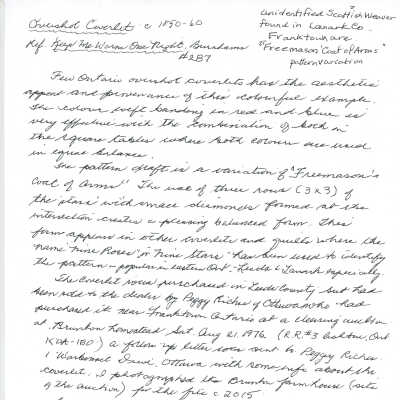 Overshot Coverlet c 1850-60
unidentified Scottish Weaver
found in Lanark Co.
Franktown are
"Freemason Coat of Arms"
pattern variation
Ref Keep Me Warm One Night, Burnhams
#287
Few Ontario overshot coverlets has the aesthetic
appeal and provenance of this colourful example.
The colour weft banding in red and blue is
very effective with the combination of both in
the square tables where both colours are used
in equal balance.
The pattern draft is a variation of "Freemason's
Coat of Arms" The use of three rows (3x3) of
the stars with small diamonds formed at the
intersection creates a pleasing balanced form. This
form appears in other coverlets and quilts where the
name "Nine Roses" or "Nine Stars" has been used to identify
the pattern - popular in eastern Ont. - Leeds & Lanark especially.
The coverlet was purchased in Leeds County but had
been sold to the dealer by Peggy Riches of Ottawa who had
purchased it near Franktown Ontario at a clearing auction
at Brunton homestead Sat. Aug 21, 1976 (R.R.#3 Ashton, Ont
K0A-1B0) a follow up letter was sent to Peggy Riches
1 Warbonnet Drive, Ottawa with some info about the
coverlet. I photographed the Brunton farmhouse (site
of the auction) for the file c 2015